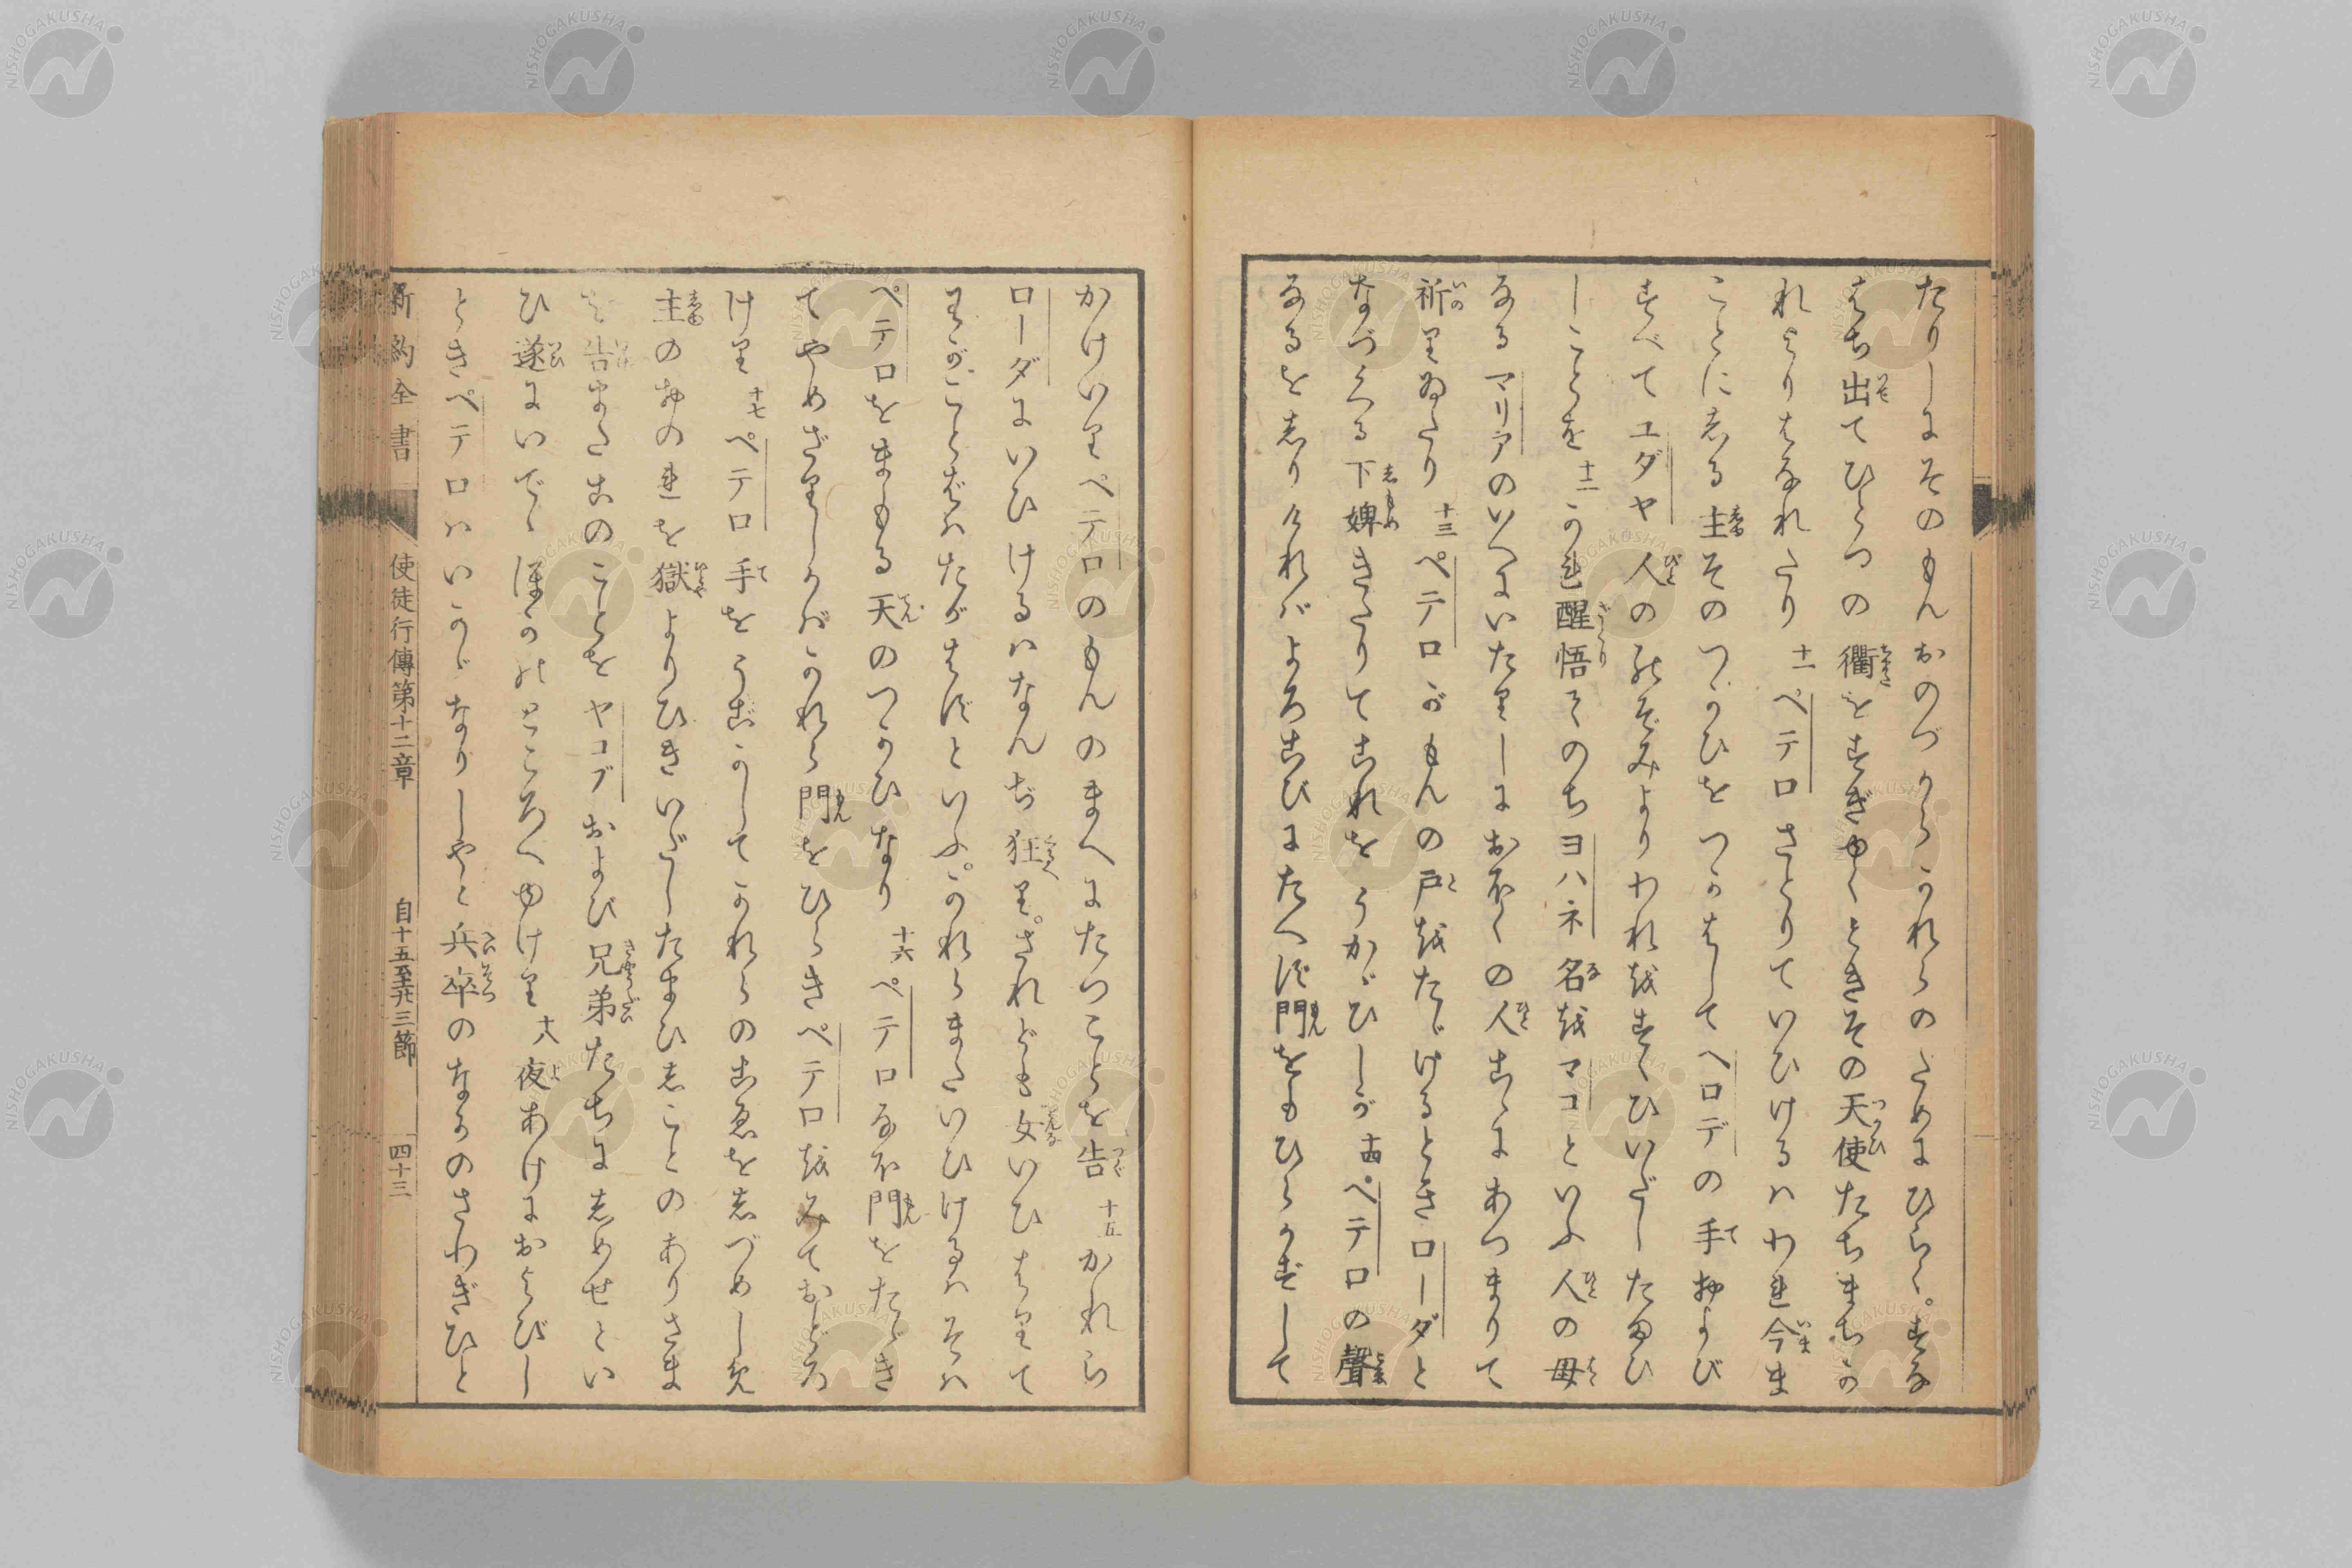 たりしにそのもんおのづからかれらのためにひらく。すな
はち出てひとつの衢をすぎゆくときその天使たちまちか
れよりはなれたり 十一 ペテロさとりていひけるハわれ今ま
ことにしる主そのつかひをつかはしてヘロデの手および
すべてユダヤ人ののぞみよりわれをすくひいだしたまひ
しことを 十二 かれ醒悟てのちヨハネ名をマコといふ人の母
なるマリアのいへにいたりしにおほくの人こゝにあつまりて
祈りゐたり 十三 ペテロがもんの戸をたゝけるときローダと
なづくる下婢きたりてこれをうかゞひしが 十四 ペテロの聲
なるをしりければよろこびにたへず門をもひらかずして
かけいりペテロのもんのまへにたつことを告 十五 かれら
ローダにいひけるハなんぢ狂り。されども女いひはりて
わがことばハたがはずといふ。かれらまたいひけるハそハ
ペテロをまもる天のつかひなり 十六 ペテロなほ門をたゝき
てやめざりしかバかれら門をひらきペテロをみておどろ
けり 十七 ペテロ手をうごかしてかれらのこゑをしづめしめ
主のおのれを獄よりひきいだしたまひしことのありさま
を告またこのことをヤコブおよび兄弟たちにしめせとい
ひ遂にいでゝほかのところへゆけり 十八 夜あけにおよびし
ときペテロハいかゞなりしやと兵卒のなかのさわぎひと
新約全書 使徒行傳第十二章 自十五至廿三節 四十三
NISHOGAKUSHA